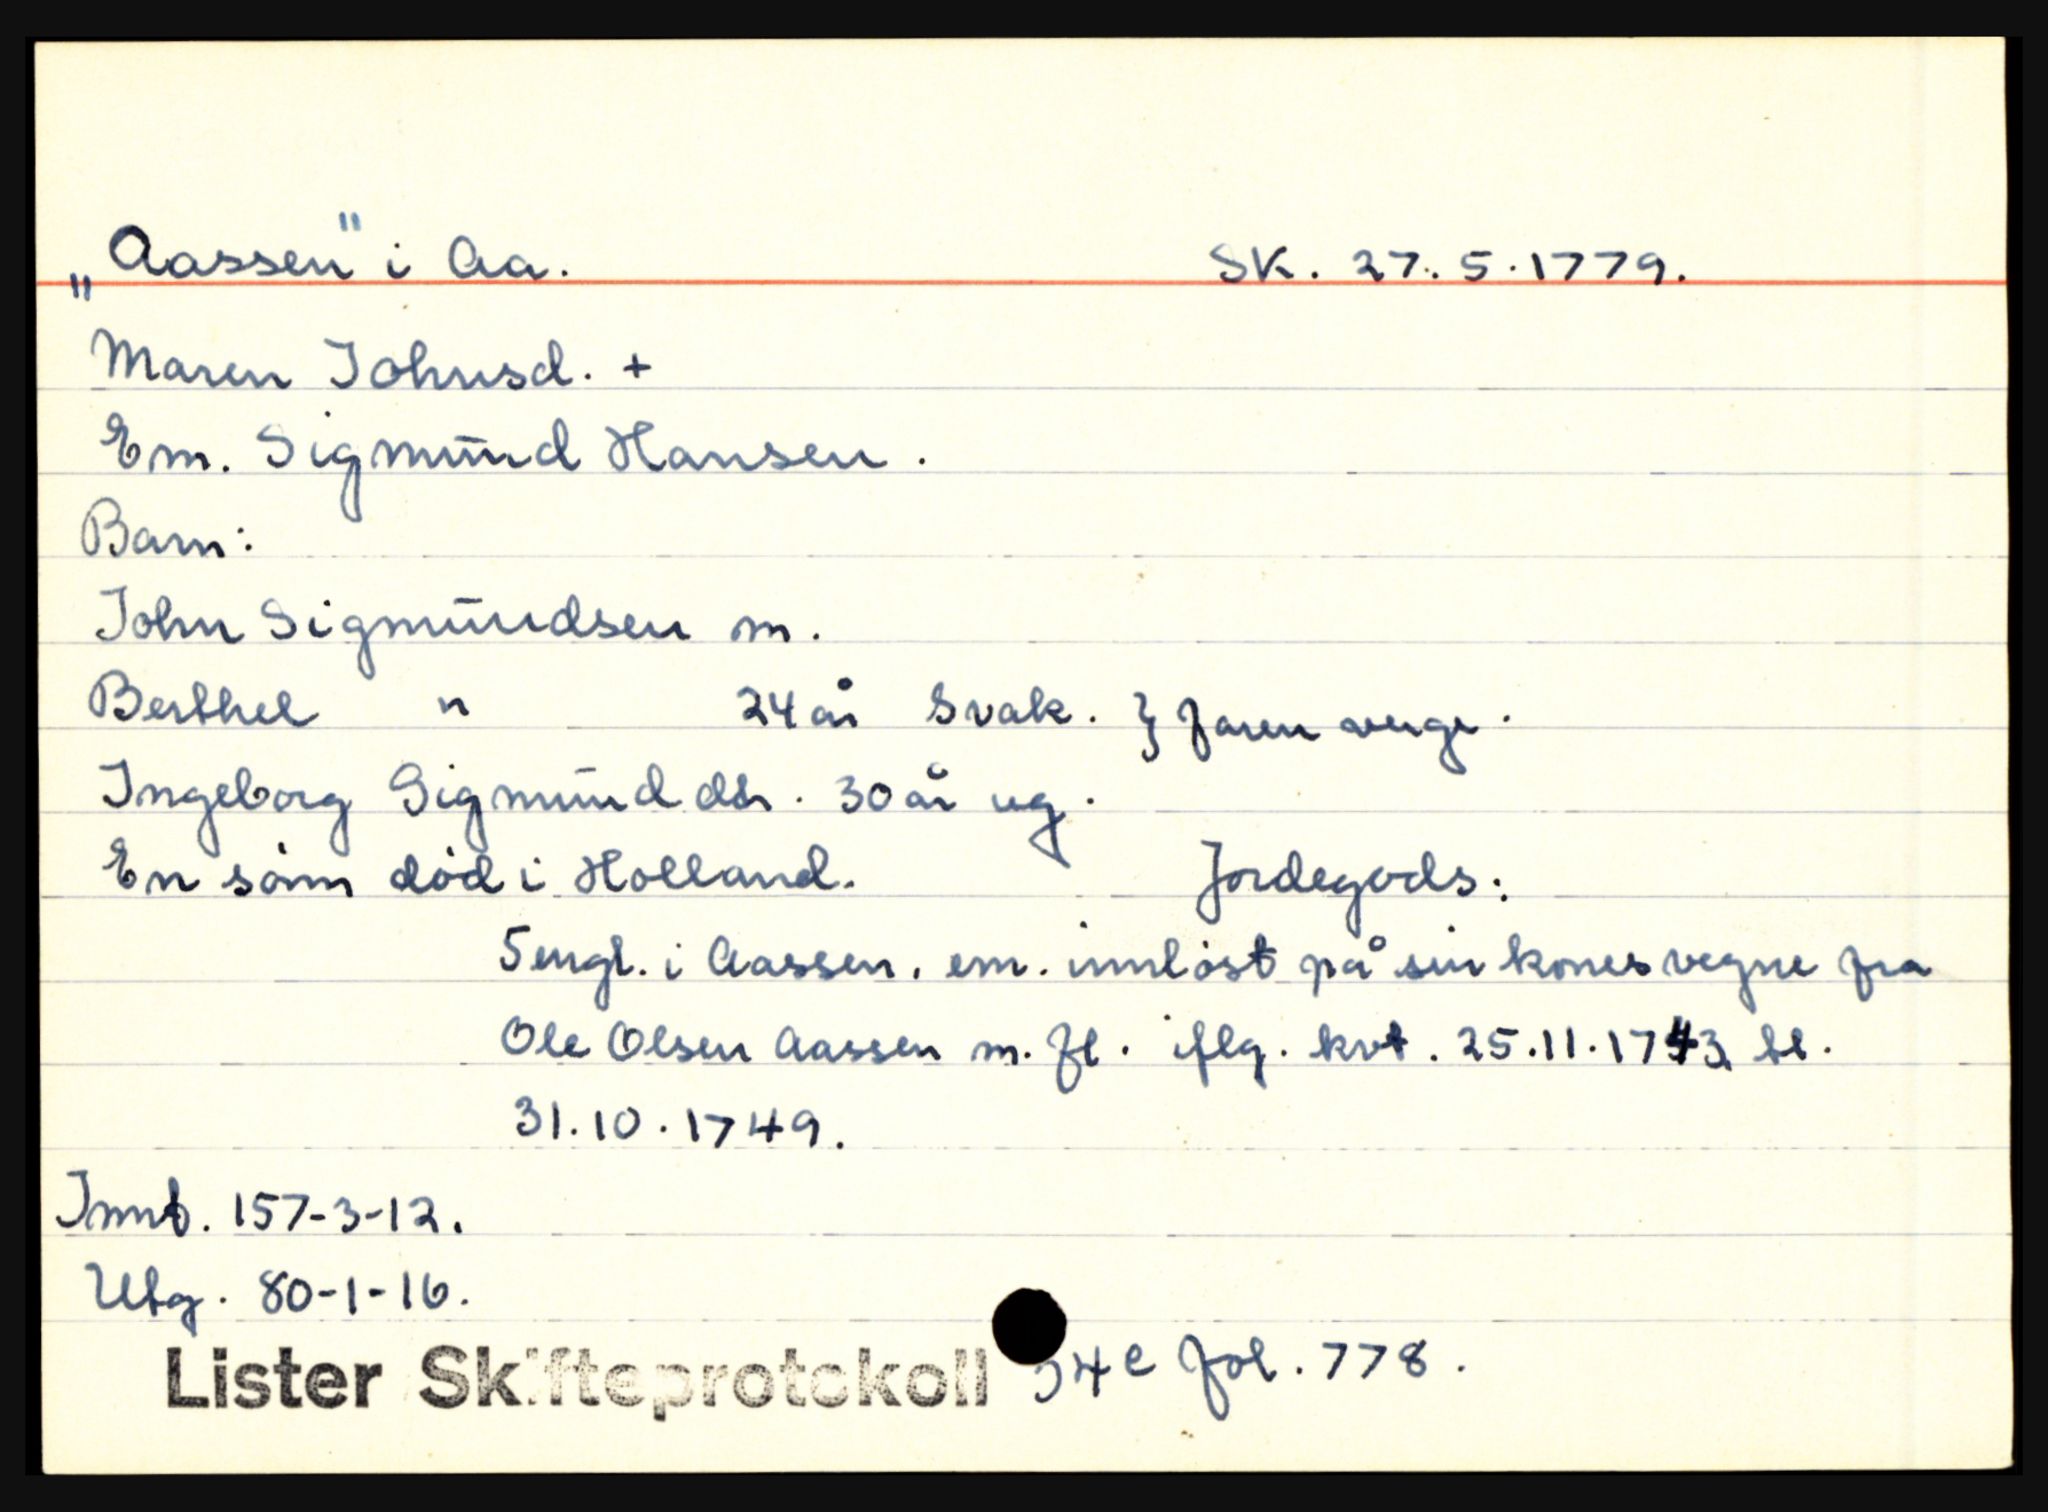 „Aassen" i Aa. SK. 27.5.1779.
Maren Johnsd. +
Em. Sigmund Hansen.
Barn:
John Sigmundsen m.
Berthel " 24 år Svak. } faren verge.
Ingeborg Sigmund dtr. 30 år ug.
En sønn død i Holland. Jordegods:
5 engl. i Aassen, em. innløst på sin kones vegne fra
Ole Olsen Aassen m. fl. iflg. kvt. 25.11.1743, tl.
31.10.1749.
Innt. 157-3-12.
Utg. 80-1-16.
Lister Skifteprotokoll 34e fol. 778.